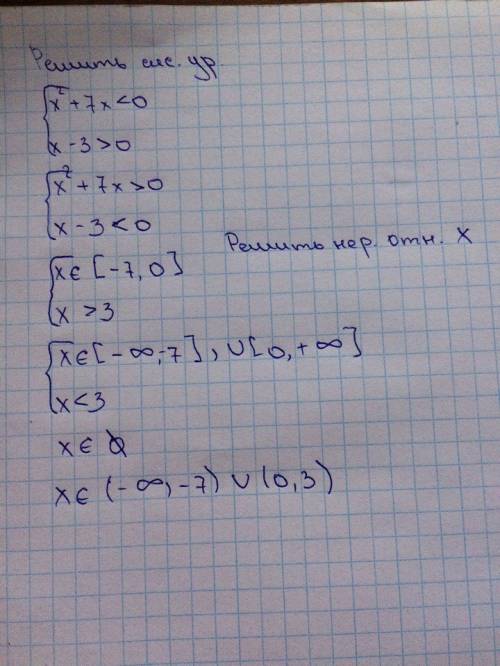 Решить сис. ур.
{ x² + 7x < 0
x - 3 > 0
{ x² + 7x > 0
x - 3 < 0
Решить нер. отн. x
{ x ∈ [-7, 0]
x > 3
{ x ∈ [-∞, -7], ∪ [0, +∞]
x < 3
x ∈ ∅
x ∈ (-∞, -7) ∪ (0, 3)